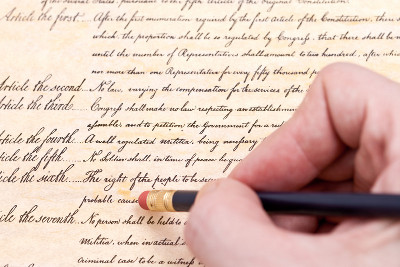 of the several States, pursuant to the fifth article of the original Constitution.
Article the first. After the first enumeration required by the first Article of the Constitution, there s
which the proportion shall be so regulated by Congress, that there shall be n
until the number of Representatives shall amount to two hundred, after whic
nor more than one Representative for every fifty thousand p
Article the second No law, varying the compensation for the services of the
Article the third. Congress shall make no law respecting an establishmen
assemble, and to petition the Government for a red
Article the fourth. A well regulated militia, being necessary
Article the fifth. No Soldier shall, in time of peace be qua
Article the sixth. The right of the people to be secu
probable cause
Article the seventh. No person shall be held to
Militia, when in actual s
criminal case to be a witness